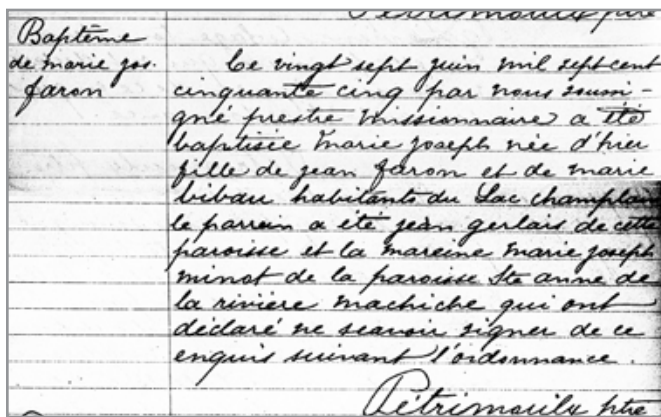 Pétrimoulx ptre
Baptême
de marie jos.
faron
Ce vingt sept juin mil sept cent
cinquante cinq par nous soussi-
gné prestre missionnaire a été
baptisée marie joseph née d'hier
fille de jean faron et de marie
bibau habitants du Lac champlain
le parrein a été jean gerlais de cette
paroisse et la mareine marie joseph
minot de la paroisse Ste anne de
la rivière machiche qui ont
déclaré ne scavoir signer de ce
enquis suivant l'ordonnance.
Pétrimoulx ptre